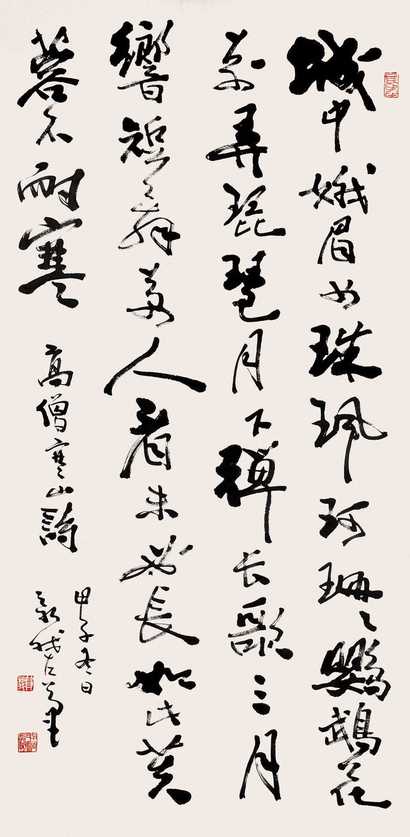 城中娥眉女珠珮珂珊々鸚鵡花
前弄琵琶月下彈长歌三月
響短舞萬人看未必長如此芙
蓉不耐寒 高僧寒山詩
甲子冬日